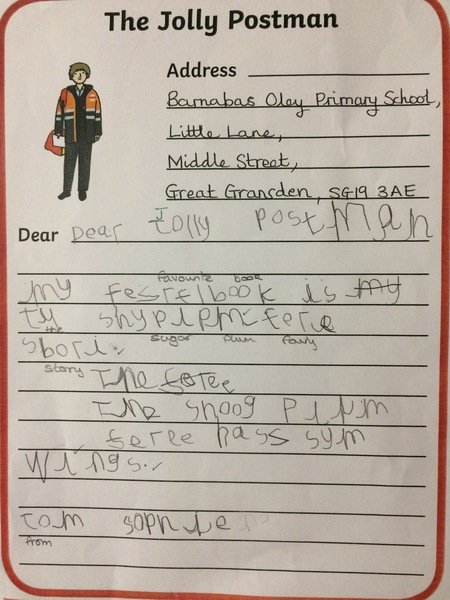 The Jolly Postman
Address
Barnabas Oley Primary School,
Little Lane,
Middle Street,
Great Gransden, SG19 3AE
Dear Dear Jolly postMan
favourite book
my fesrflbook is my
ty shyplpm ferie
the sugar plum fairy
sbori.
story The feree
The shoog plum
feree hass sym
wings.
rom sophie
from